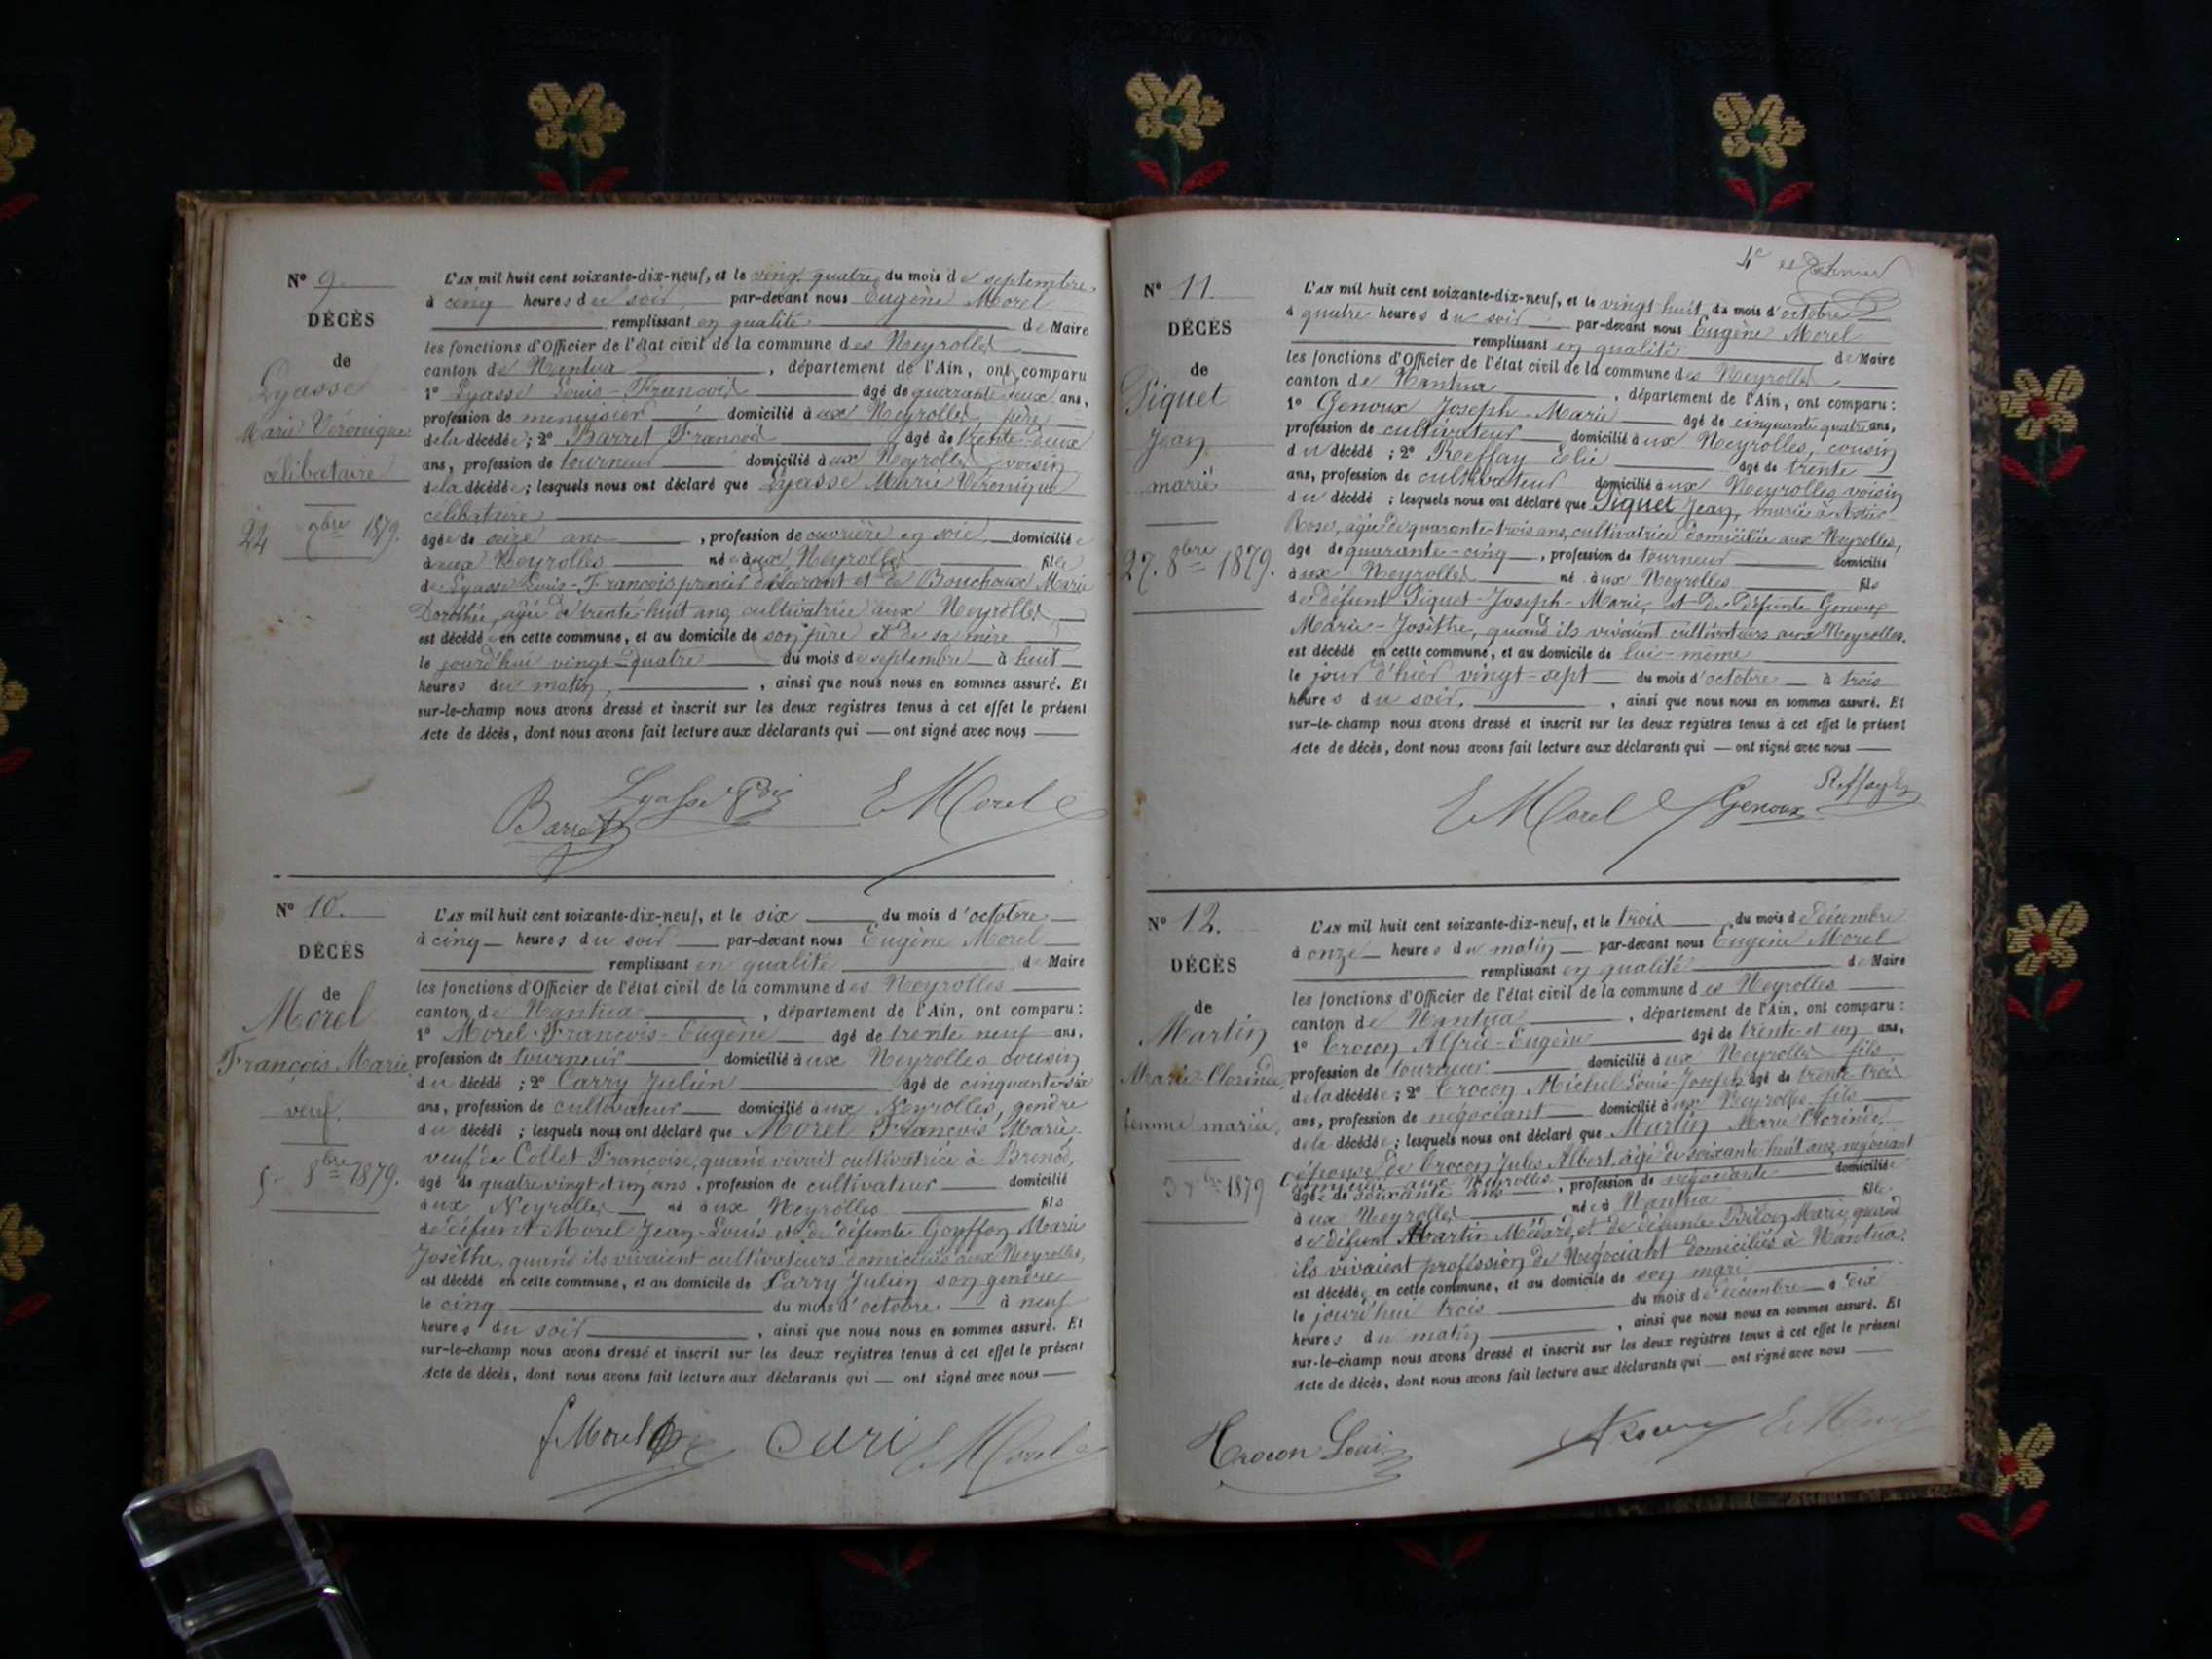 N° 9.
DÉCÈS
de
Lyasse
Marie Véronique
célibataire
24 9bre 1879.
L'AN mil huit cent soixante-dix-neuf, et le vingt quatre du mois de septembre,
à cinq heures du soir par-devant nous Eugène Morel
remplissant en qualité de Maire
les fonctions d'Officier de l'état civil de la commune des Neyrolles
canton de Nantua, département de l'Ain, ont comparu
1° Lyasse Louis-François âgé de quarante deux ans,
profession de menuisier domicilié aux Neyrolles, père
de la décédée; 2° Barret François âgé de trente-deux
ans, profession de tourneur domicilié aux Neyrolles, voisin
de la décédée; lesquels nous ont déclaré que Lyasse Marie Véronique
célibataire
âgée de seize ans, profession de ouvrière en soie domiciliée
aux Neyrolles née aux Neyrolles fille
de Lyasse Louis-François premier déclarant et de Bouchoux Marie
Dorothée, agée de trente-huit ans, cultivatrice aux Neyrolles,
est décédée en cette commune, et au domicile de son père et de sa mère
le jourd'hui vingt-quatre du mois de septembre à huit
heures du matin, ainsi que nous nous en sommes assuré. Et
sur-le-champ nous avons dressé et inscrit sur les deux registres tenus à cet effet le présent
Acte de décès, dont nous avons fait lecture aux déclarants qui — ont signé avec nous —
Lyasse
Barret E Morel
N° 10.
DÉCÈS
de
Morel
François Marie
veuf.
5 8bre 1879.
L'AN mil huit cent soixante-dix-neuf, et le six du mois d'octobre
à cinq heures du soir par-devant nous Eugène Morel
remplissant en qualité de Maire
les fonctions d'Officier de l'état civil de la commune des Neyrolles
canton de Nantua, département de l'Ain, ont comparu:
1° Morel François-Eugène âgé de trente neuf ans,
profession de tourneur domicilié aux Neyrolles cousin
du décédé; 2° Carry Julien âgé de cinquante-six
ans, profession de cultivateur domicilié aux Neyrolles, gendre
du décédé; lesquels nous ont déclaré que Morel François Marie,
veuf de Collet Françoise, quand vivait cultivatrice à Brénod,
âgé de quatre vingt et un ans, profession de cultivateur domicilié
aux Neyrolles né aux Neyrolles fils
de défunt Morel Jean-Louis et de défunte Goyffon Marie
Josèthe, quand ils vivaient cultivateurs domiciliés aux Neyrolles,
est décédé en cette commune, et au domicile de Carry Julien son gendre
le cinq du mois d'octobre à neuf
heures du soir, ainsi que nous nous en sommes assuré. Et
sur-le-champ nous avons dressé et inscrit sur les deux registres tenus à cet effet le présent
Acte de décès, dont nous avons fait lecture aux déclarants qui — ont signé avec nous —
f Morel Cari E Morel
4e et dernier
N° 11.
DÉCÈS
de
Piquet
Jean
marié
27. 8bre 1879.
L'AN mil huit cent soixante-dix-neuf, et le vingt-huit du mois d'octobre
à quatre heures du soir par-devant nous Eugène Morel
remplissant en qualité de Maire
les fonctions d'Officier de l'état civil de la commune des Neyrolles
canton de Nantua, département de l'Ain, ont comparu:
1° Genoux Joseph-Marie âgé de cinquante quatre ans,
profession de cultivateur domicilié aux Neyrolles, cousin
du décédé; 2° Reffay Elie âgé de trente
ans, profession de cultivateur domicilié aux Neyrolles voisin
du décédé; lesquels nous ont déclaré que Piquet Jean, marié à
Rose, agée de quarante-trois ans, cultivatrice domiciliée aux Neyrolles,
âgé de quarante-cinq, profession de tourneur domicilié
aux Neyrolles né aux Neyrolles fils
de défunt Piquet Joseph-Marie, et de défunte Genoux
Marie-Josèthe, quand ils vivaient cultivateurs aux Neyrolles.
est décédé en cette commune, et au domicile de lui-même
le jour d'hier vingt-sept du mois d'octobre à trois
heures du soir, ainsi que nous nous en sommes assuré. Et
sur-le-champ nous avons dressé et inscrit sur les deux registres tenus à cet effet le présent
Acte de décès, dont nous avons fait lecture aux déclarants qui — ont signé avec nous —
E Morel Genoux Reffay
N° 12.
DÉCÈS
de
Martin
Marie Clorinde,
femme mariée.
3 Xbre 1879
L'AN mil huit cent soixante-dix-neuf, et le trois du mois de décembre
à onze heures du matin par-devant nous Eugène Morel
remplissant en qualité de Maire
les fonctions d'Officier de l'état civil de la commune des Neyrolles
canton de Nantua, département de l'Ain, ont comparu:
1° Crocon Alfred-Eugène âgé de trente et un ans,
profession de tourneur domicilié aux Neyrolles fils
de la décédée; 2° Crocon Michel Louis-Joseph âgé de trente trois
ans, profession de négociant domicilié aux Neyrolles fils
de la décédée; lesquels nous ont déclaré que Martin Marie Clorinde,
épouse de Crocon Jules Albert, agé de soixante-huit ans, négociant
domicilié aux Neyrolles
âgée de soixante ans, profession de négociante domiciliée
aux Neyrolles née à Nantua fille
de défunt Martin Médard, et de défunte Marie, quand
ils vivaient profession de Négociant domiciliés à Nantua.
est décédée en cette commune, et au domicile de son mari
le jourd'hui trois du mois de décembre à dix
heures du matin, ainsi que nous nous en sommes assuré. Et
sur-le-champ nous avons dressé et inscrit sur les deux registres tenus à cet effet le présent
Acte de décès, dont nous avons fait lecture aux déclarants qui — ont signé avec nous —
Crocon Loui E Morel